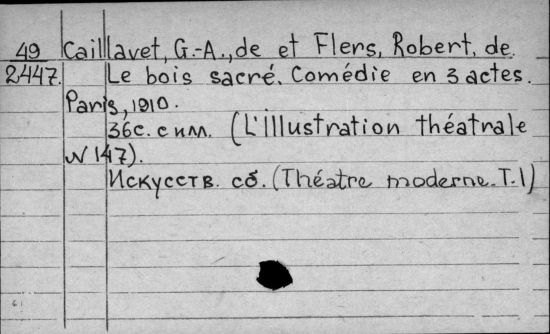 49 Caillavet, G.-A., de et Flers, Robert, de.
2447. Le bois sacré. Comédie en 3 actes.
Paris, 1910.
36с. с илл. (L'Illustration théatrale
N 147).
Искусств. сб. (Théatre moderne. T. 1)